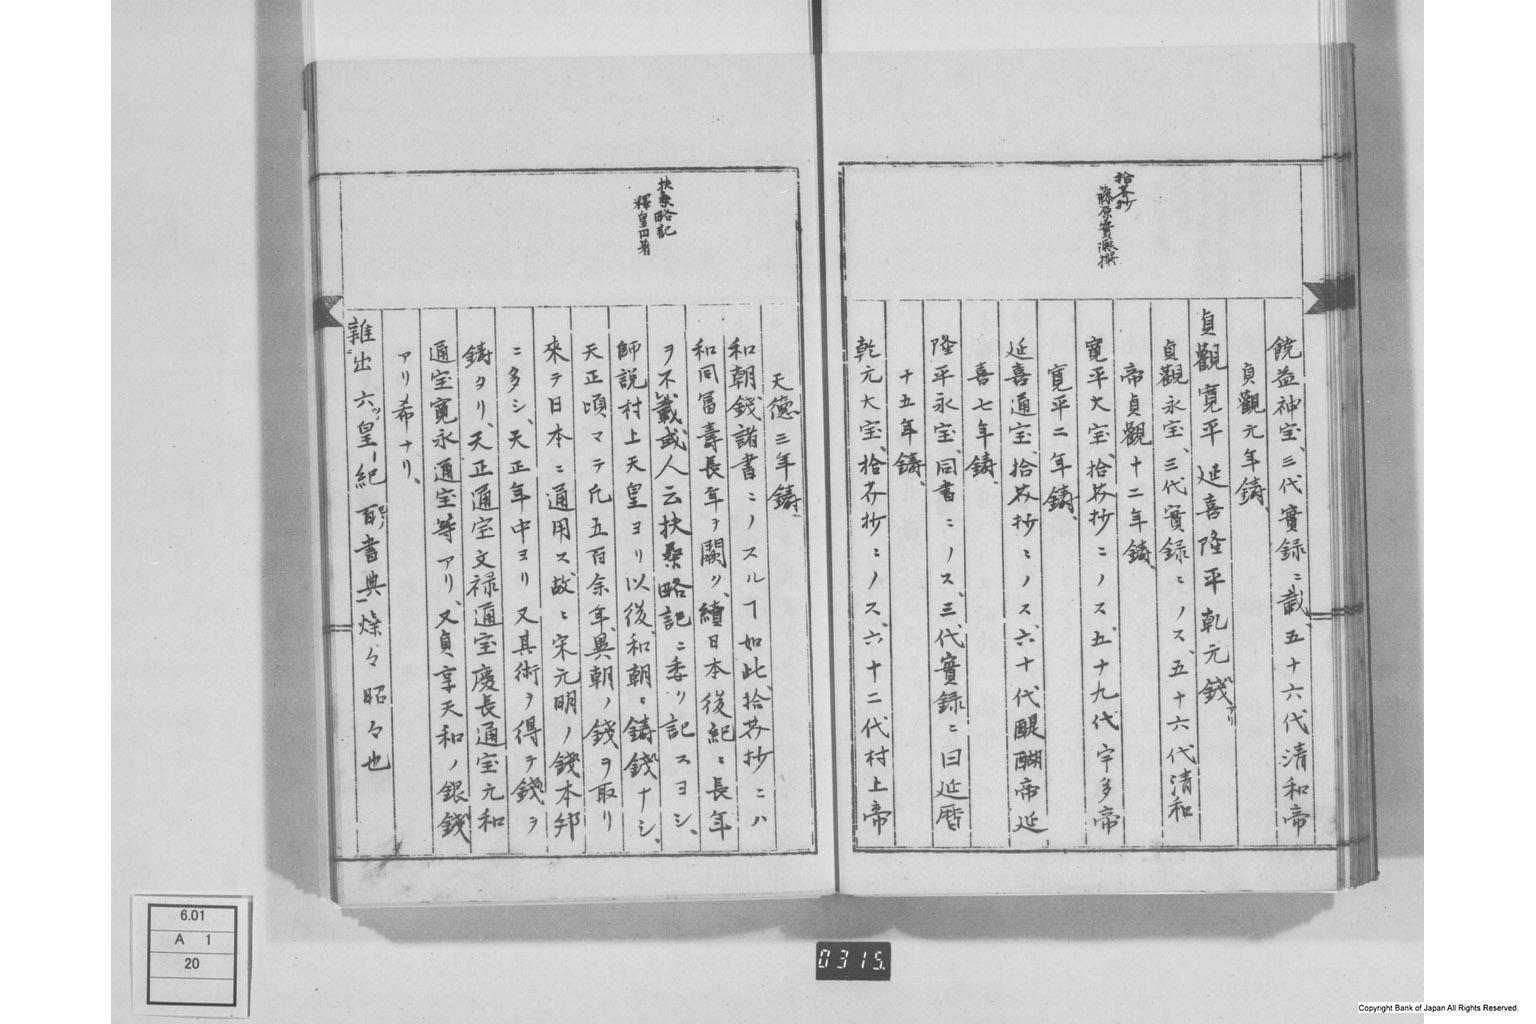 拾芥抄
藤原實凞撰
饒益神宝、三代實録ニ載、五十六代清和帝
貞觀元年鋳、
貞觀寛平延喜隆平乾元錢アリ
貞觀永宝、三代實録ニノス、五十六代清和
帝貞觀十二年鋳、
寛平大宝、拾芥抄ニノス、五十九代宇多帝
寛平二年鋳、
延喜通宝、拾芥抄ニノス、六十代醍醐帝延
喜七年鋳、
隆平永宝、同書ニノス、三代實録ニ曰延暦
十五年鋳、
乾元大宝、拾芥抄ニノス、六十二代村上帝
扶桑略記
釋皇円著
天德三年鋳、
和朝錢諸書ニノスルヿ如此、拾芥抄ニハ
和同冨壽長年ヲ闕ク、續日本後紀ニ長年
ヲ不載、或人云扶桑略記ニ委ク記スヨシ、
師説村上天皇ヨリ以後、和朝ニ鋳錢ナシ、
天正頃マテ凡五百余年、異朝ノ錢ヲ取リ
來テ日本ニ通用ス、故ニ宋元明ノ錢本邦
ニ多シ、天正年中ヨリ又其術ヲ得テ錢ヲ
鋳タリ、天正通宝文禄通宝慶長通宝元和
通宝寛永通宝等アリ、又貞享天和ノ銀錢
アリ希ナリ、
誰出六ツ皇ノ紀百書典燦々昭々也
6.01
A 1
20
0315.
Copyright Bank of Japan All Rights Reserved.